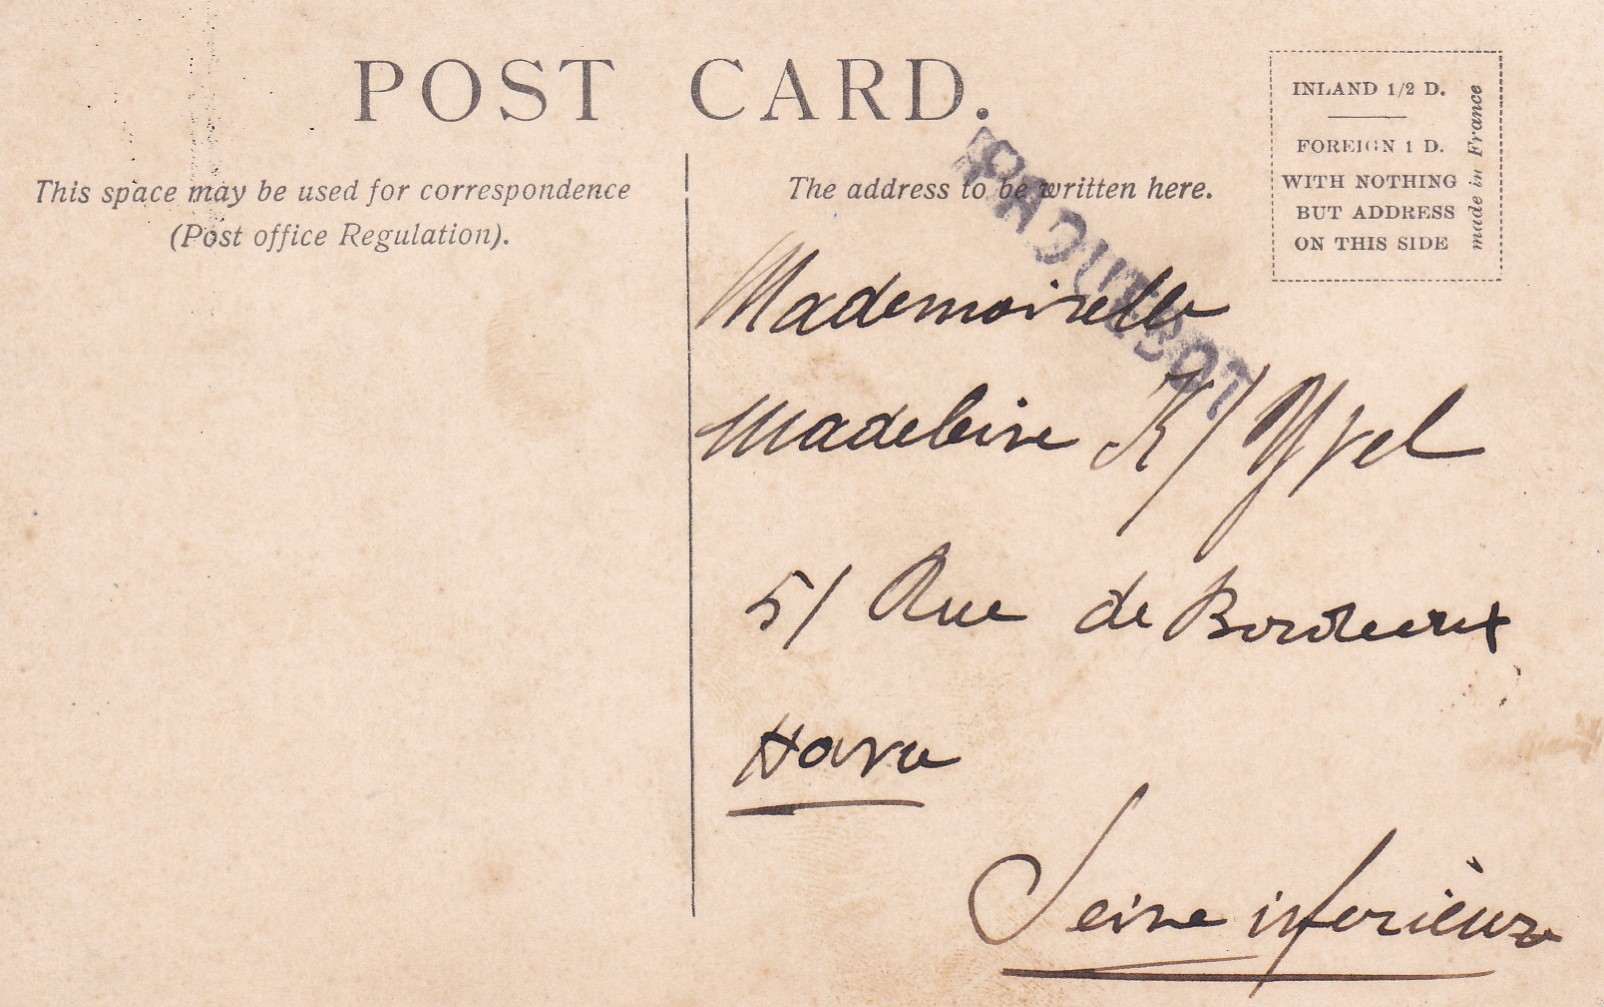 POST CARD.
This space may be used for correspondence
(Post office Regulation).
The address to be written here.
INLAND 1/2 D.
FOREIGN 1 D.
WITH NOTHING
BUT ADDRESS
ON THIS SIDE
made in France
PAQUEBOT
Mademoiselle
Madeleine K/
51 Rue de Bordeaux
Havre
Seine inferièure